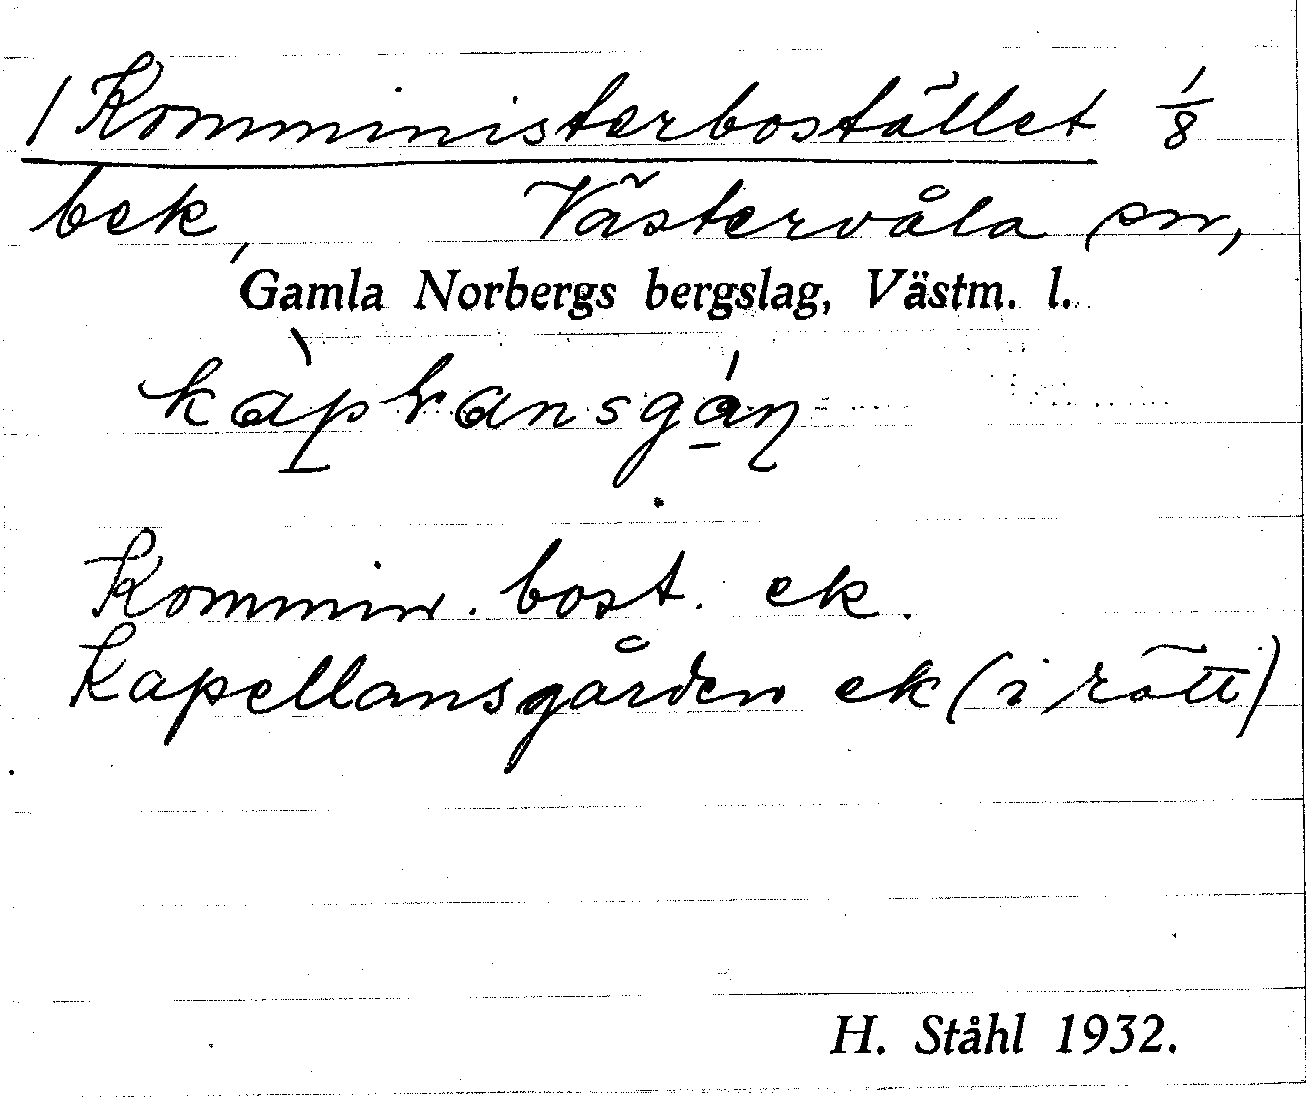 1 Komministerbostället 1/8
bek, Västervåla sn,
Gamla Norbergs bergslag, Västm. l.
Kommin. bost. ek.
Kapellansgården ek (i rätt)
H. Ståhl 1932.